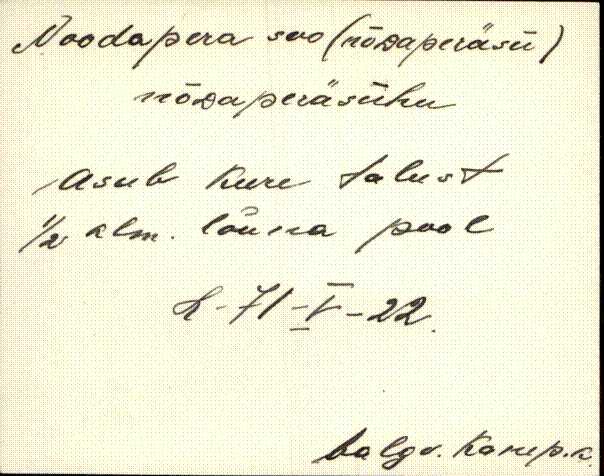 Noodapera soo (nõdaperäsü)
nõdaperäsühu
Asub Kure talust
1/2 klm. lõuna pool
L-71-V-22.
Valgv. Karep.k.